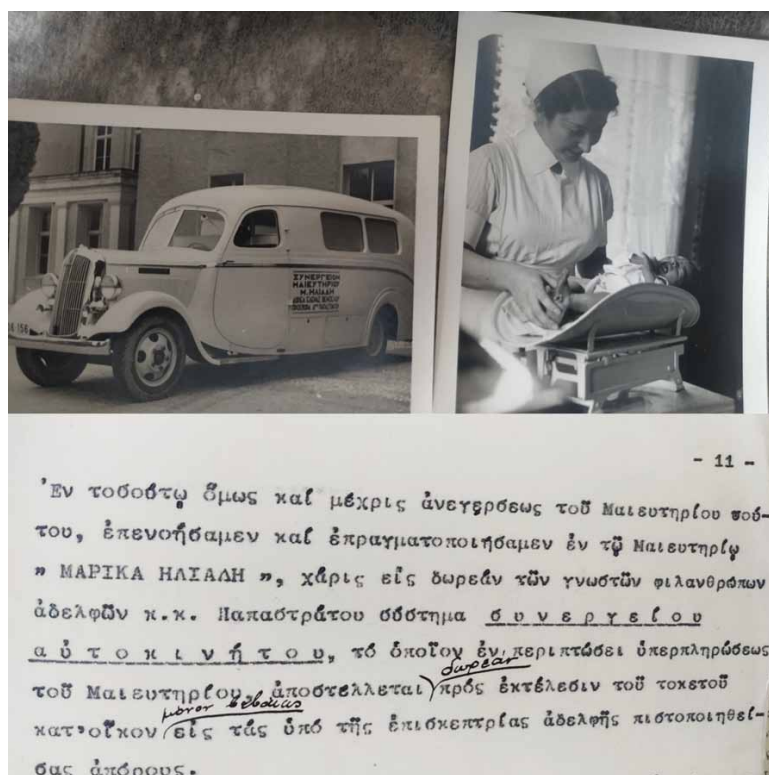 ΣΥΝΕΡΓΕΙΟΝ
ΜΑΙΕΥΤΗΡΙΟΥ
Μ. ΗΛΙΑΔΗ
156
- 11 -
Ἐν τοσούτῳ ὅμως καί μέχρις ἀνεγέρσεως τοῦ Μαιευτηρίου τού-
του, ἐπενοήσαμεν καί ἐπραγματοποιήσαμεν ἐν τῷ Μαιευτηρίῳ
" ΜΑΡΙΚΑ ΗΛΙΑΔΗ ", χάρις εἰς δωρεάν τῶν γνωστῶν φιλανθρώπων
ἀδελφῶν κ.κ. Παπαστράτου σύστημα σ υ ν ε ρ γ ε ί ο υ
α ὐ τ ο κ ι ν ή τ ο υ, τό ὁποῖον ἐν περιπτώσει ὑπερπληρώσεως
δωρεάν
τοῦ Μαιευτηρίου, ἀποστέλλεται πρός ἐκτέλεσιν τοῦ τοκετοῦ
μόνον βεβαίως
κατ'οἶκον εἰς τάς ὑπό τῆς ἐπισκεπτρίας ἀδελφῆς πιστοποιηθεί-
σας ἀπόρους.